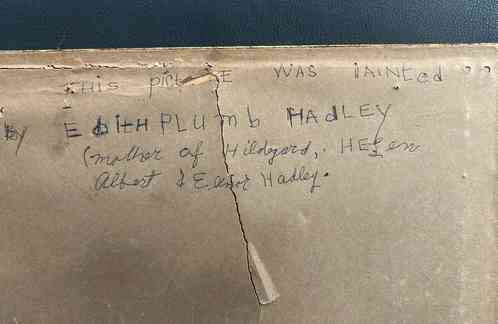 THis pict E WAS PAINted
by EdiTH PLUmb HAdLEY
(mother of Hildegard, HElen
Albert & Eleanor Hadley.